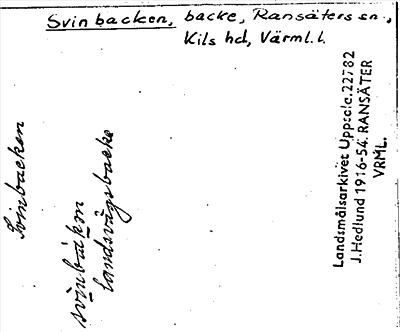 Svinbacken, backe, Ransäters sn.,
Kils hd, Värml. l.
Svinbacken
svinbákɱ
landsvägsbacke
Landsmålsarkivet Uppsala. 22782
J. Hedlund 1916-54. RANSÄTER
VRML.